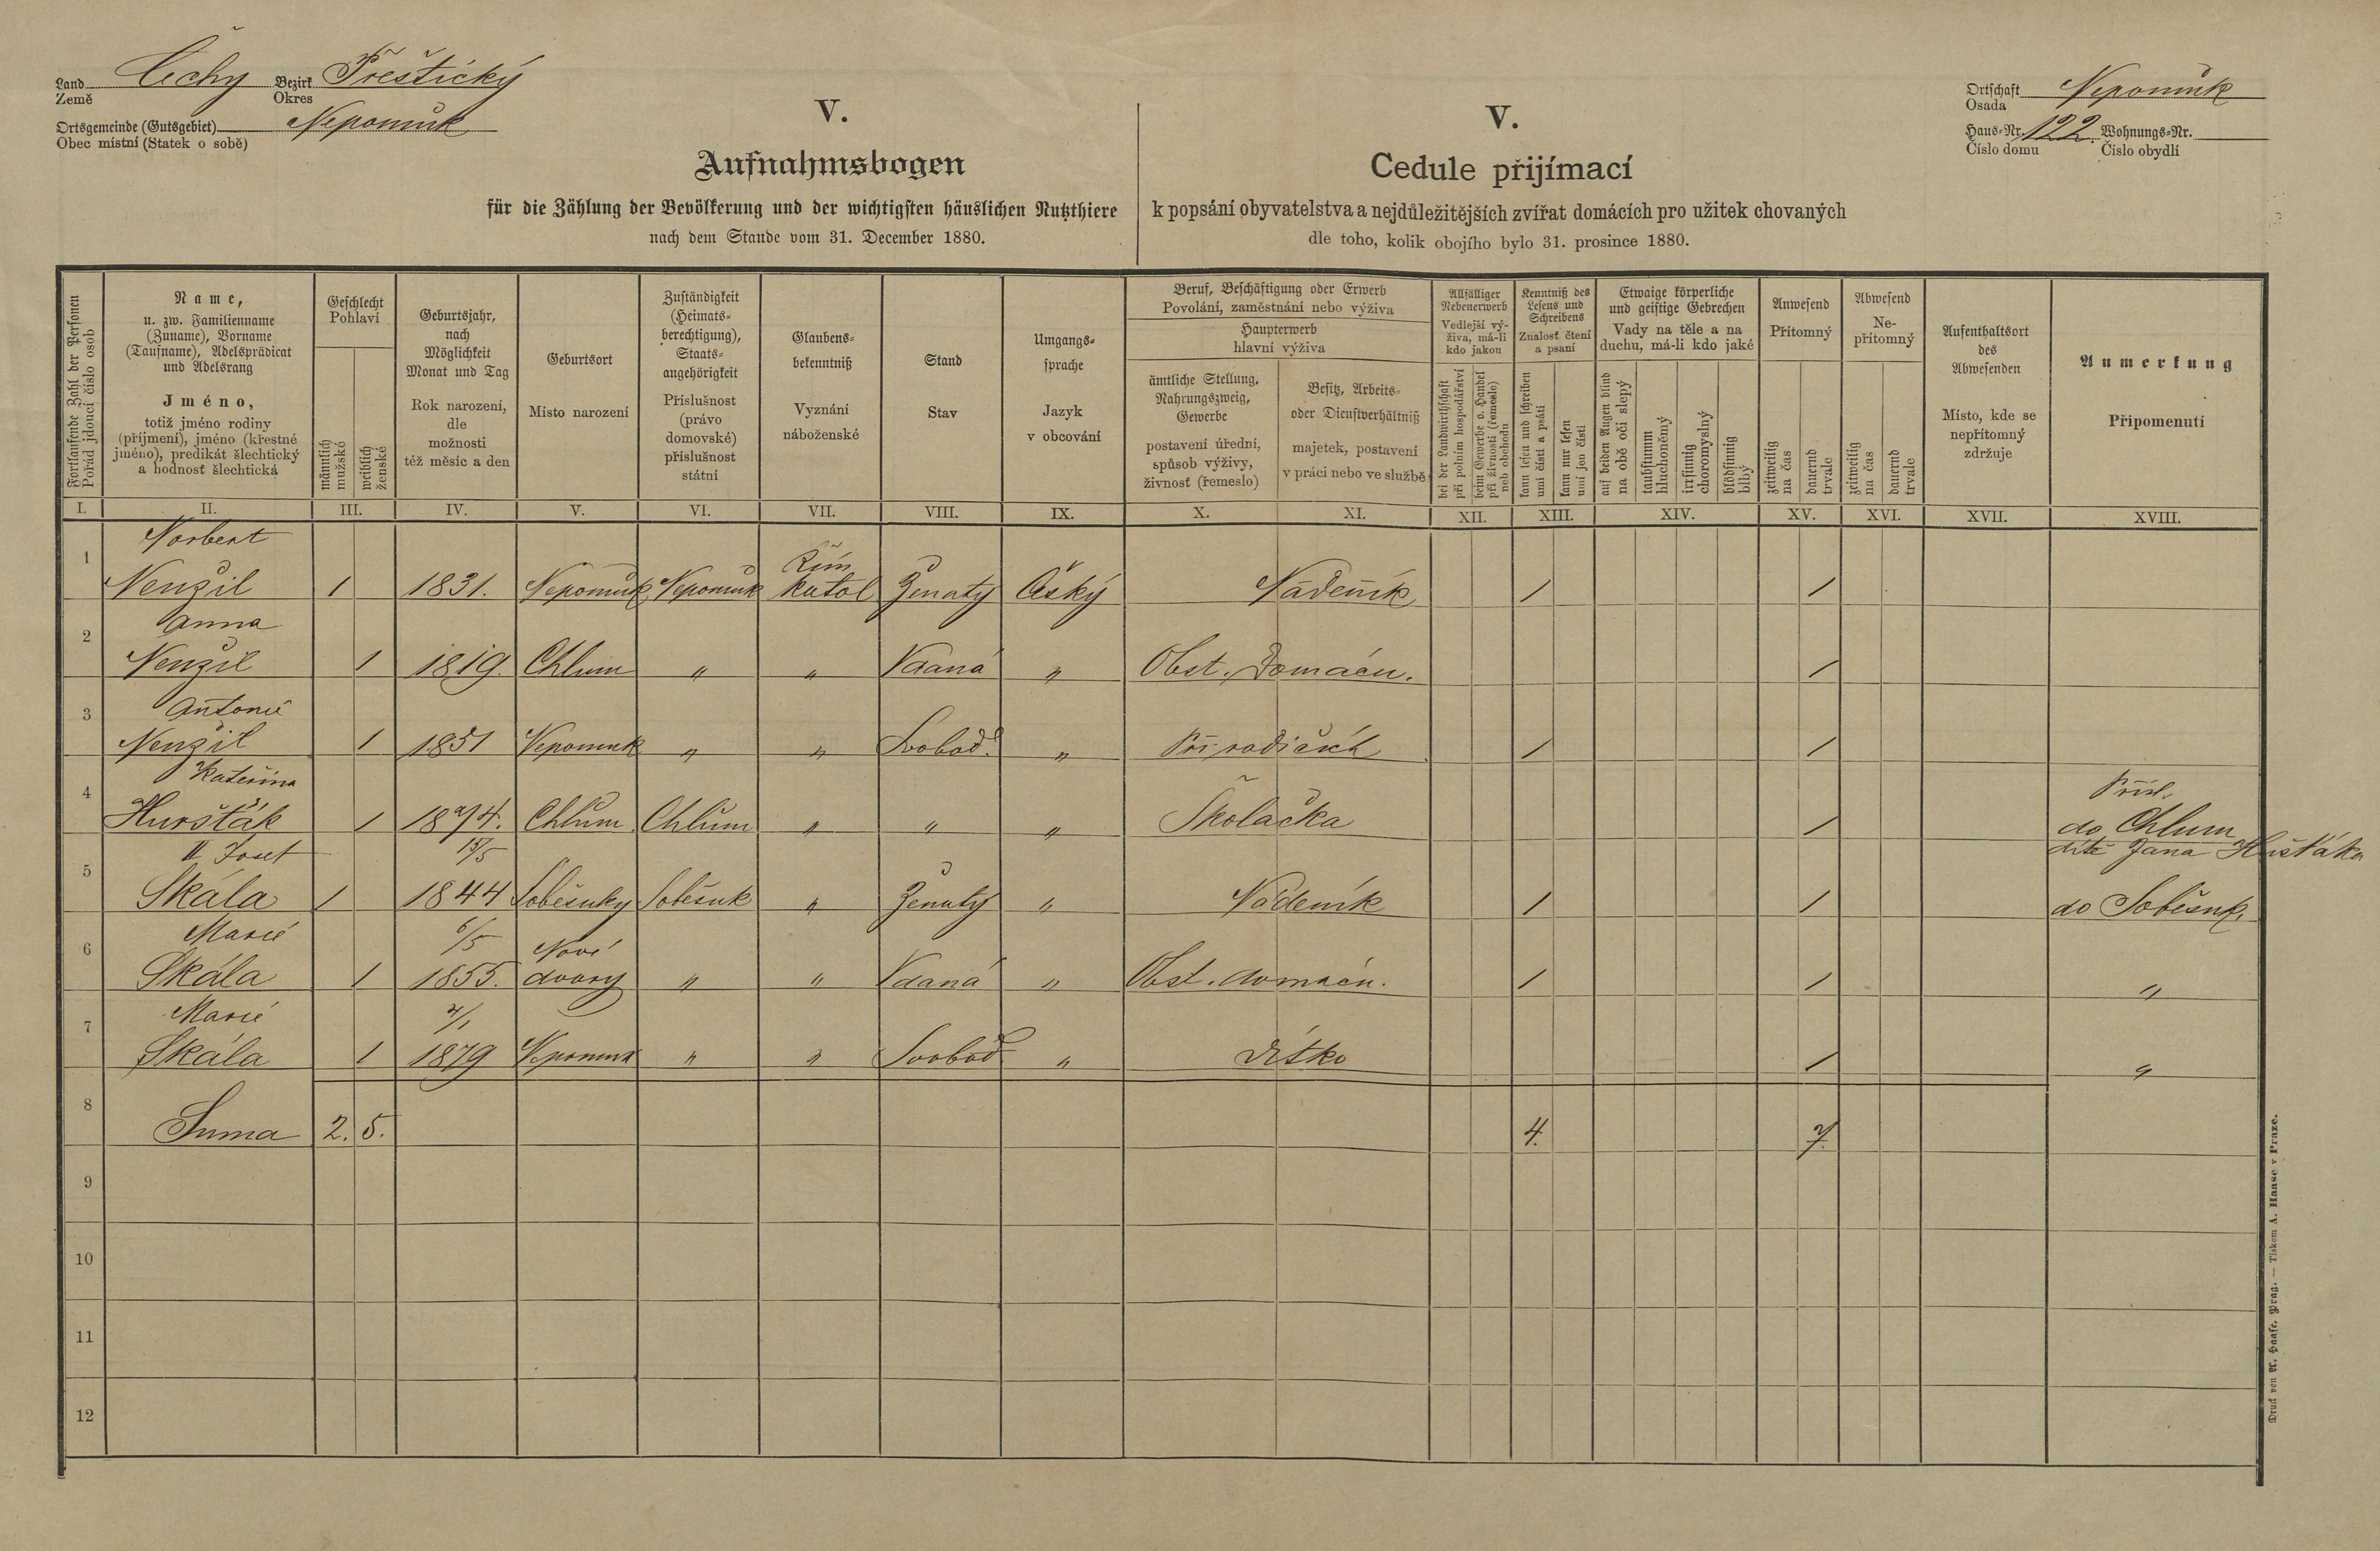 Land Čechy Bezirk Přeštický
Země Okres
Ortsgemeinde (Gutsgebiet) Nepomuk
Obec místní (Statek o sobě)
V.
Aufnahmsbogen
für die Zählung der Bevölkerung und der wichtigsten häuslichen Nutzthiere
nach dem Stande vom 31. December 1880.
V.
Cedule přijímací
k popsání obyvatelstva a nejdůležitějších zvířat domácích pro užitek chovaných
dle toho, kolik obojího bylo 31. prosince 1880.
Ortschaft Nepomuk
Osada
Haus-Nr. 122. Wohnungs-Nr.
Číslo domu Číslo obydlí
Fortlaufende Zahl der Personen
Pořád jdoucí číslo osob
Name,
u. zw. Familienname
(Zuname), Vorname
(Taufname), Adelsprädicat
und Adelsrang
Jméno,
totiž jméno rodiny
(příjmení), jméno (křestné
jméno), predikát šlechtický
a hodnosť šlechtická
Geschlecht
Pohlaví
männlich
mužské
weiblich
ženské
Geburtsjahr,
nach
Möglichkeit
Monat und Tag
Rok narození,
dle
možnosti
též měsíc a den
Geburtsort
Místo narození
Zuständigkeit
(Heimats-
berechtigung),
Staats-
angehörigkeit
Příslušnost
(právo
domovské)
příslušnost
státní
Glaubens-
bekenntniß
Vyznání
náboženské
Stand
Stav
Umgangs-
sprache
Jazyk
v obcování
Beruf, Beschäftigung oder Erwerb
Povolání, zaměstnání nebo výživa
Haupterwerb
hlavní výživa
ämtliche Stellung,
Nahrungszweig,
Gewerbe
postavení úřední,
způsob výživy,
živnosť (řemeslo)
Besitz, Arbeits-
oder Dienstverhältniß
majetek, postavení
v práci nebo ve službě
Allfälliger
Nebenerwerb
Vedlejší vý-
živa, má-li
kdo jakou
bei der Landwirthschaft
při polním hospodářství
beim Gewerbe o. Handel
při živnosti (řemesle)
neb obchodu
Kenntniß des
Lesens und
Schreibens
Znalosť čtení
a psaní
kann lesen und schreiben
umí čísti a psáti
kann nur lesen
umí jen čísti
Etwaige körperliche
und geistige Gebrechen
Vady na těle a na
duchu, má-li kdo jaké
auf beiden Augen blind
na obě oči slepý
taubstumm
hluchoněmý
irrsinnig
choromyslný
blödsinnig
blbý
Anwesend
Přítomný
zeitweilig
na čas
dauernd
trvale
Abwesend
Ne-
přítomný
zeitweilig
na čas
dauernd
trvale
Aufenthaltsort
des
Abwesenden
Místo, kde se
nepřítomný
zdržuje
Anmerkung
Připomenutí
I. II. III. IV. V. VI. VII. VIII. IX. X. XI. XII. XIII. XIV. XV. XVI. XVII. XVIII.
Norbert
Řím
1 Nenžil 1 1831. Nepomuk Nepomuk katol Ženatý Český Nádeník / /
Anna
2 Nenžil 1 1819. Chlum " " Vdaná " Obst. Domácn. /
Antonie
3 Nenžil 1 1851 Nepomuk " " Svobod. " Při rodičích / /
Kateřina Přísl.
4 Huršťák 1 1874. Chlum. Chlum " " " Školačka / do Chlum
II Josef 15/5 dítě Jana Hušťáka
5 Skála 1 1844 Soběsuky Soběsuk " Ženatý " Nádeník / / do Soběsuk.
Marie 6/5 Nové
6 Skála 1 1855. dvory " " Vdaná " Obst. domácn. / / "
Marie
7 Skála 1 1879 Nepomuk " " Svobod " dítko / "
8 Suma 2. 5. 4. 7.
9
10
11
12
Druck von A. Haase, Prag. — Tiskem A. Haase v Praze.